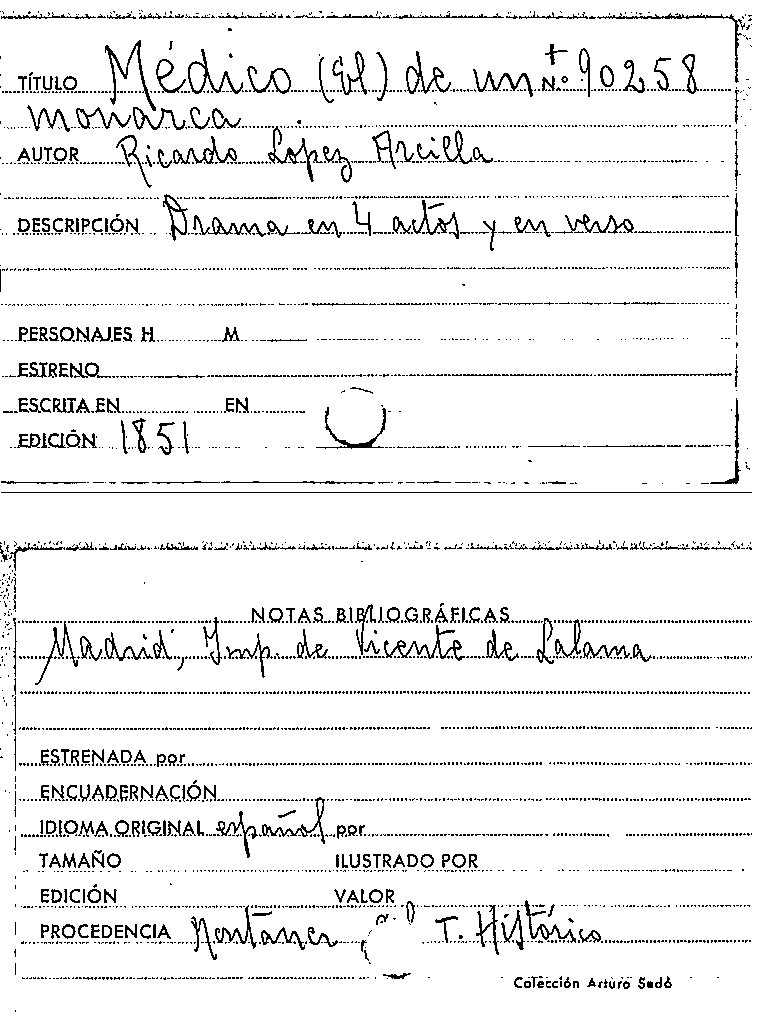 TÍTULO Médico (El) de un N.º 90258
monarca
AUTOR Ricardo López Arcilla
DESCRIPCIÓN Drama en 4 actos y en verso
PERSONAJES H M
ESTRENO
ESCRITA EN EN
EDICIÓN 1851
NOTAS BIBLIOGRÁFICAS
Madrid, Imp. de Vicente de Lalama
ESTRENADA por
ENCUADERNACIÓN
IDIOMA ORIGINAL español por
TAMAÑO ILUSTRADO POR
EDICIÓN VALOR
PROCEDENCIA T. Histórico
Colección Arturo Sedó